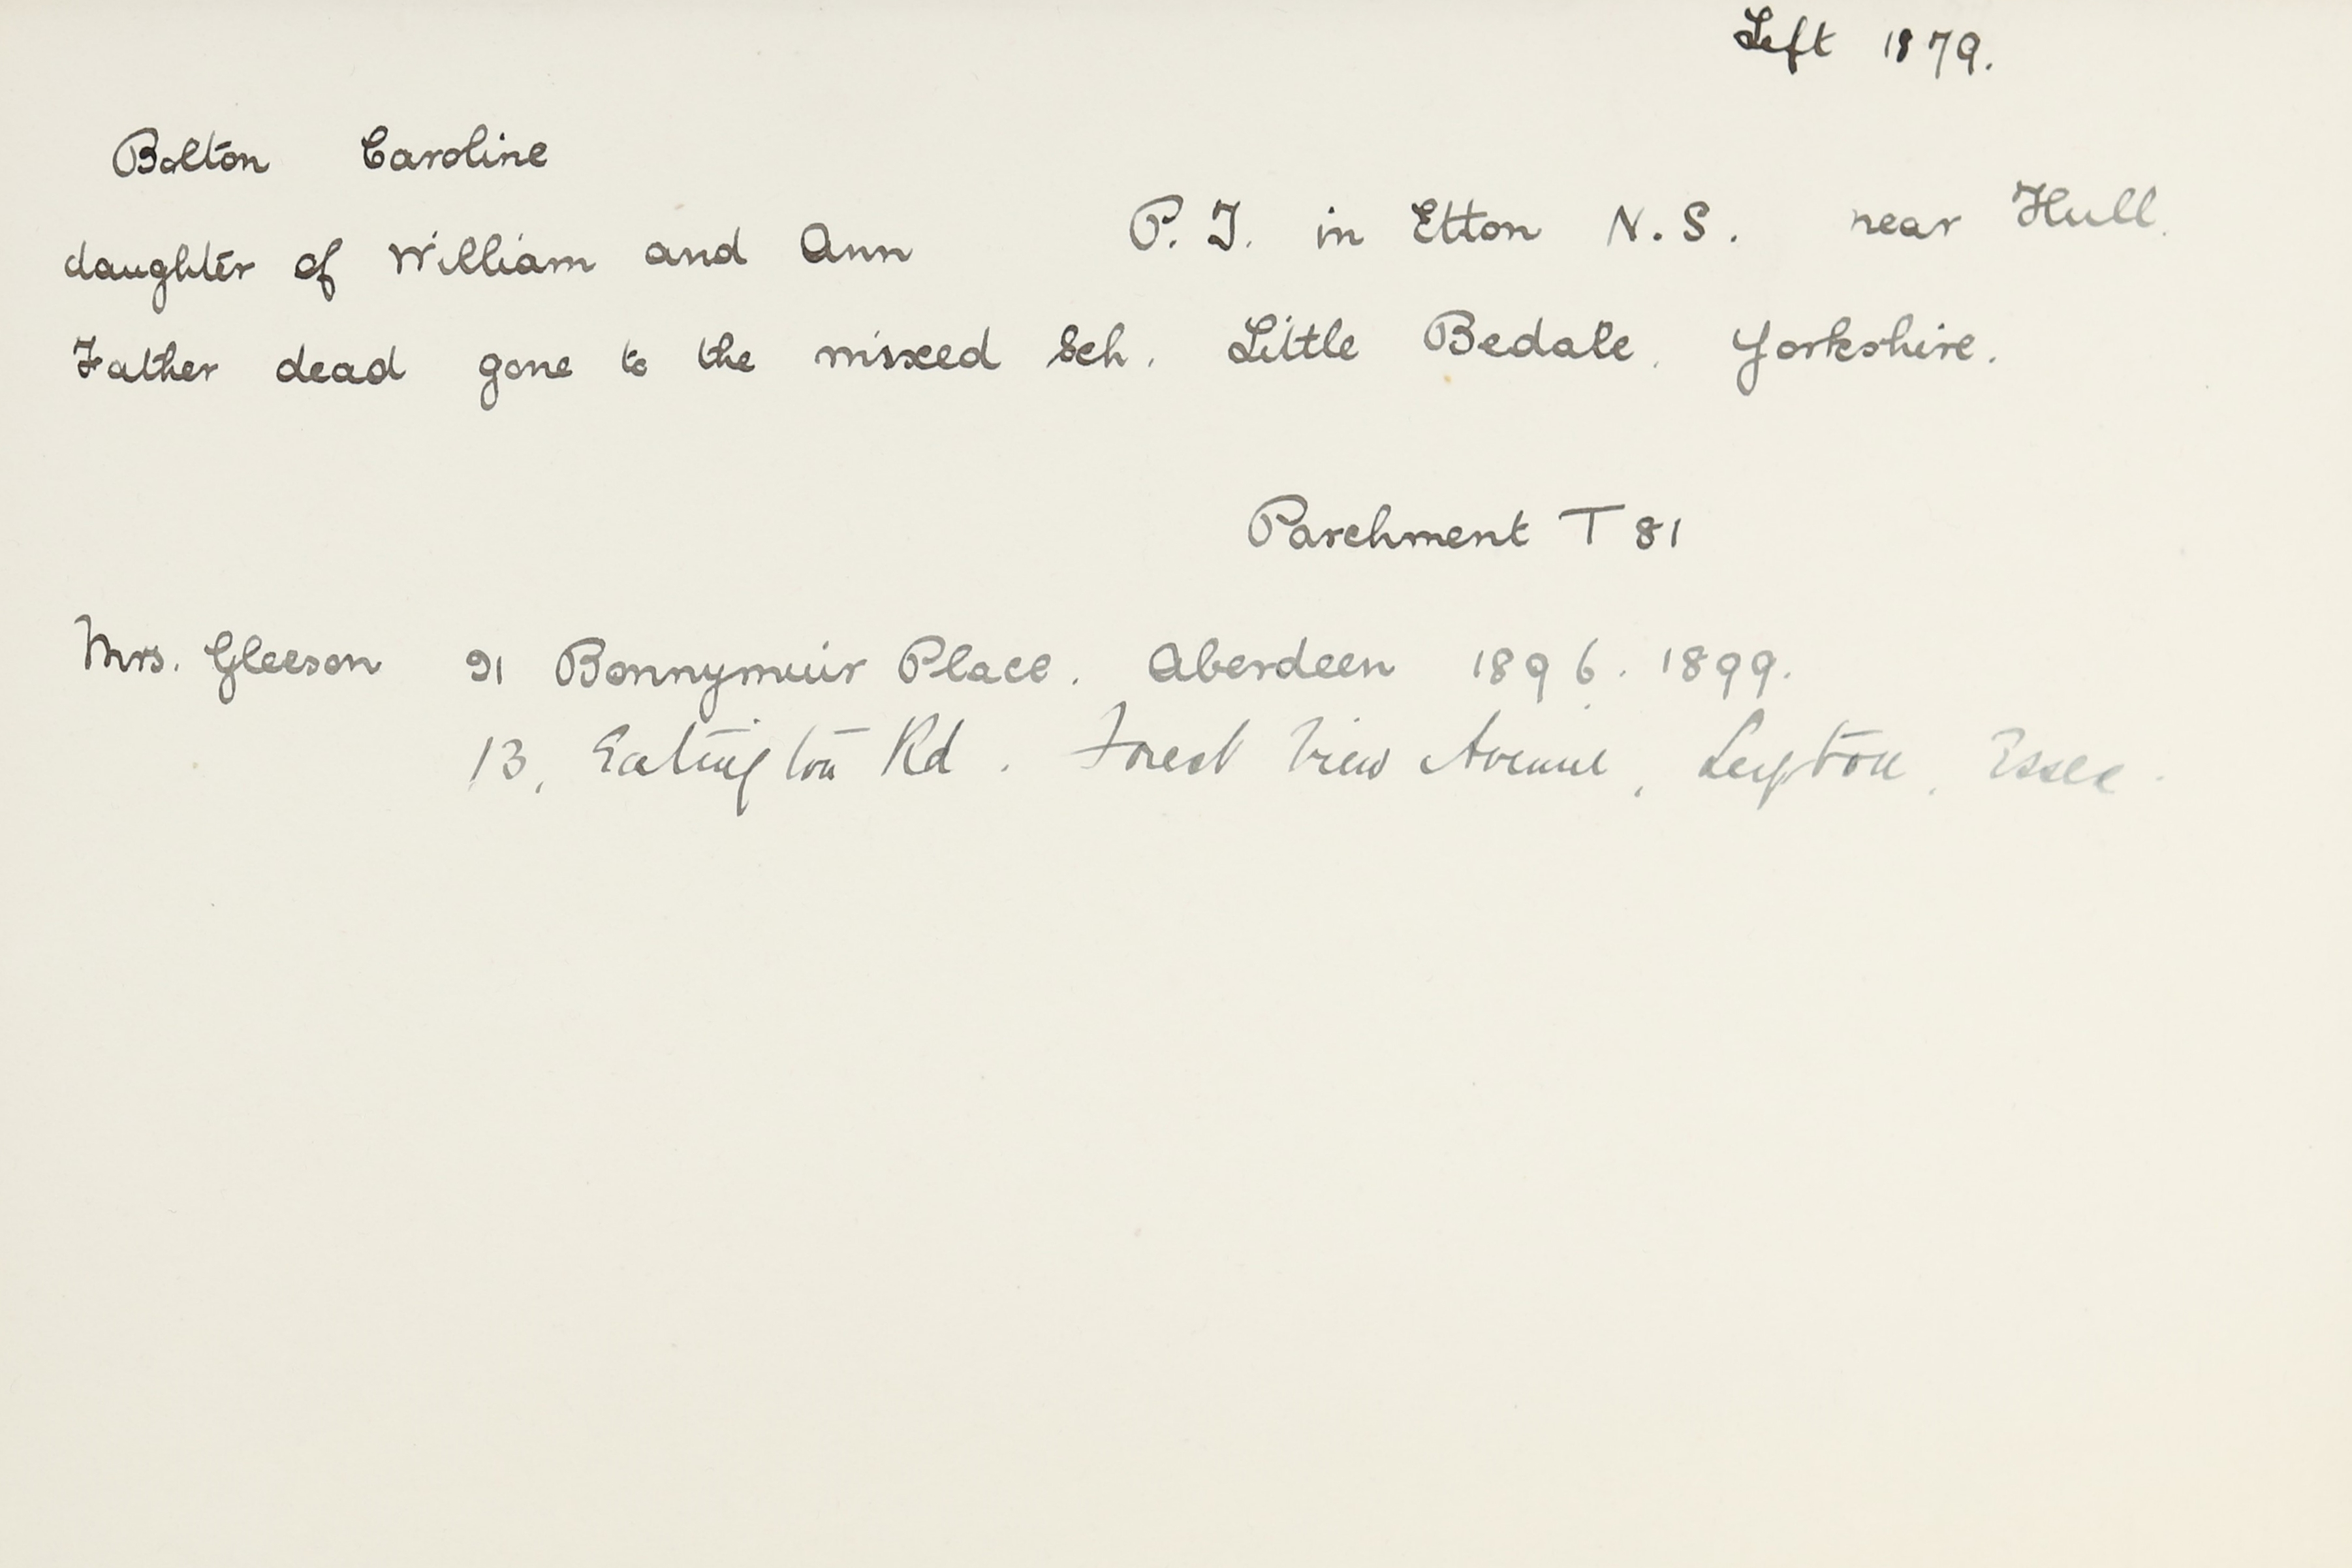 Left 1879.
Bolton Caroline
daughter of William and Ann P.T. in Etton N.S. near Hull.
Father dead gone to the mixed Sch. Little Bedale. Yorkshire.
Parchment T 81
Mrs. Gleeson 91 Bonnymuir Place. Aberdeen 1896. 1899.
13, Eatington Rd. Forest View Avenue, Leyton, Essex.